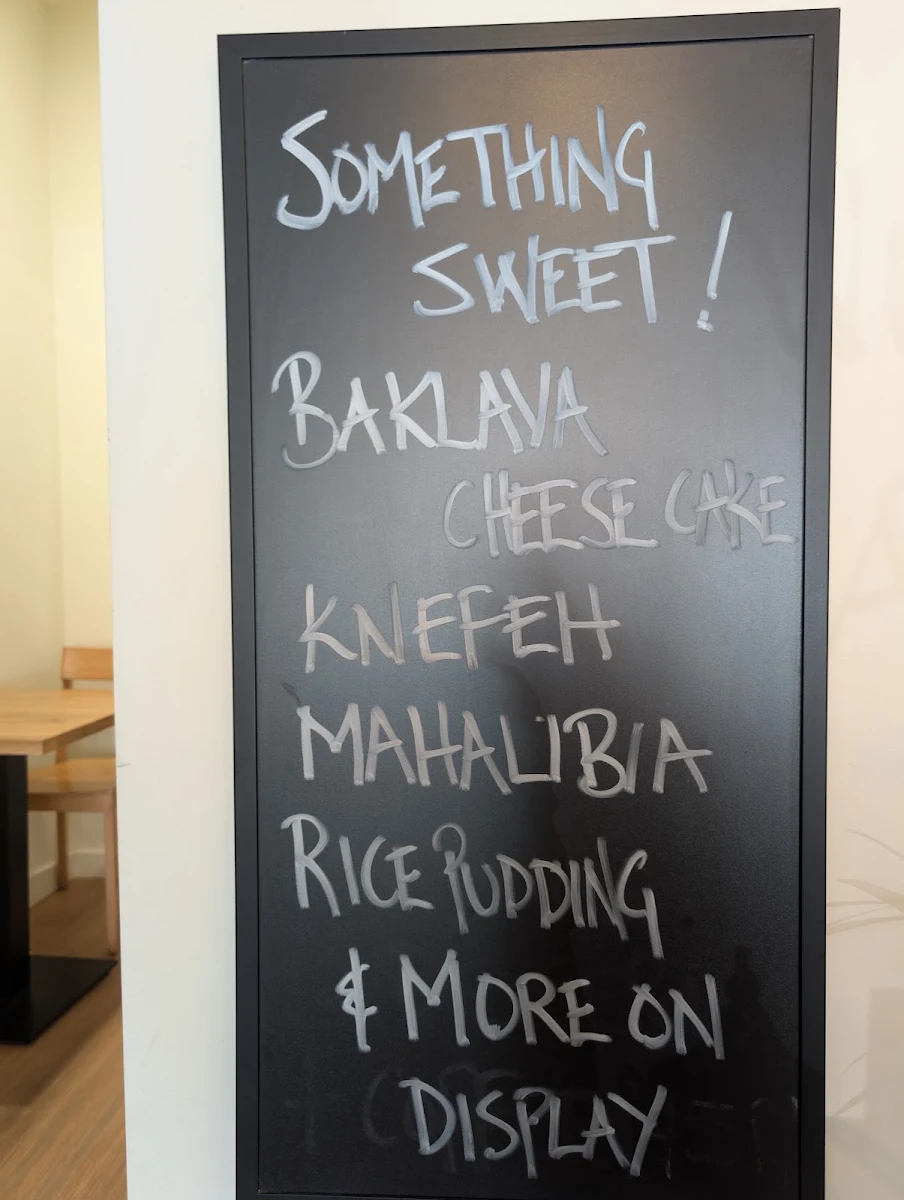 SOMETHING
SWEET!
BAKLAVA
CHEESE CAKE
KNEFEH
MAHALIBIA
RICE PUDDING
& MORE ON
DISPLAY